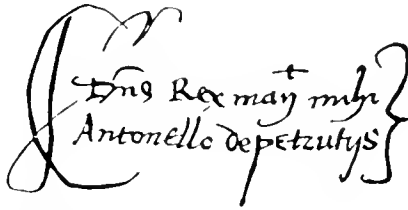 Dn̄s Rex manᵗ mihi
Antonello de petrutijs